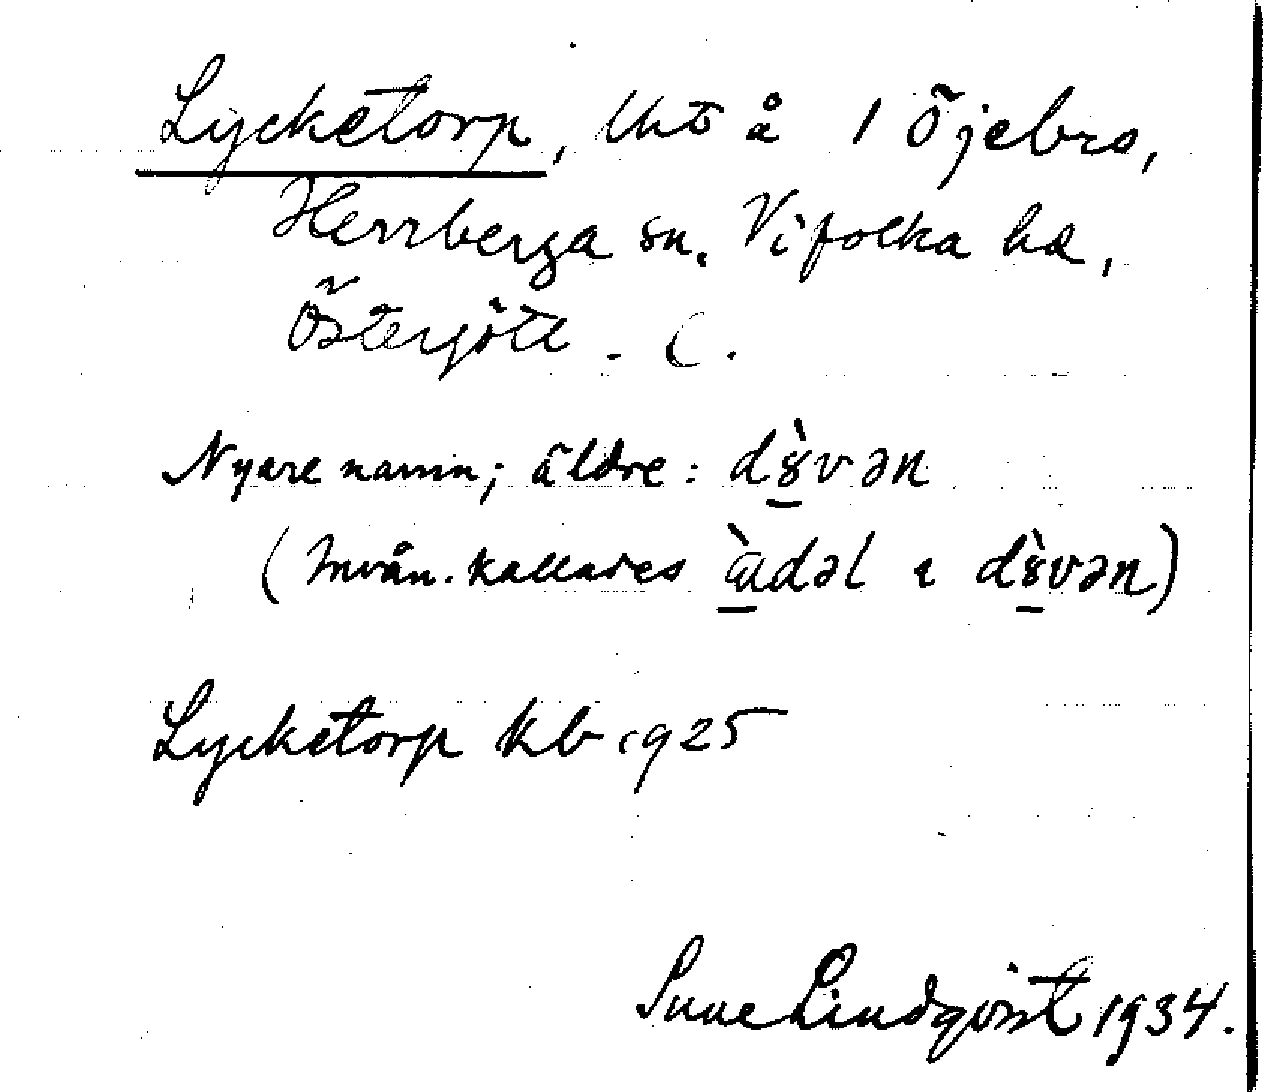 Lycketorp, lht å 1 Öjebro,
Herrberga sn. Vifolka hd,
Östergötl. C.
Nyare namn; äldre: dɤ̀vən
(Invån. kallades àdəl ɩ dɤ̀vən)
Lycketorp kb 1925
Sune Lindqvist 1934.